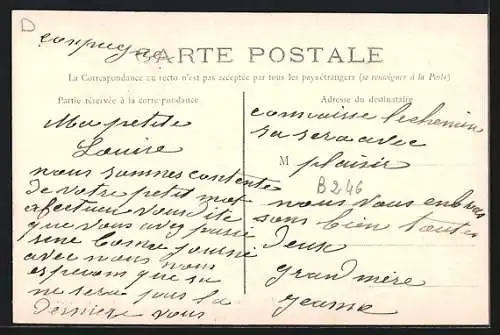 D
compugne
CARTE POSTALE
La Correspondance au recto n'est pas acceptée par tous les pays étrangers (se renseigner à la Poste)
Partie réservée à la correspondance
Ma petite
Louise
nous sommes contente
de votre petit mot
afectueu vous dite
que vous avez passé
une bonne journé
avec nous nous
esperons que sa
ne sera pas la
derniere vous
Adresse du destinataire
connaisse le chemin
sa sera avec
M plaisir
B246
nous vous enbras
sons bien toutes
deux
grand mère
Jeanne